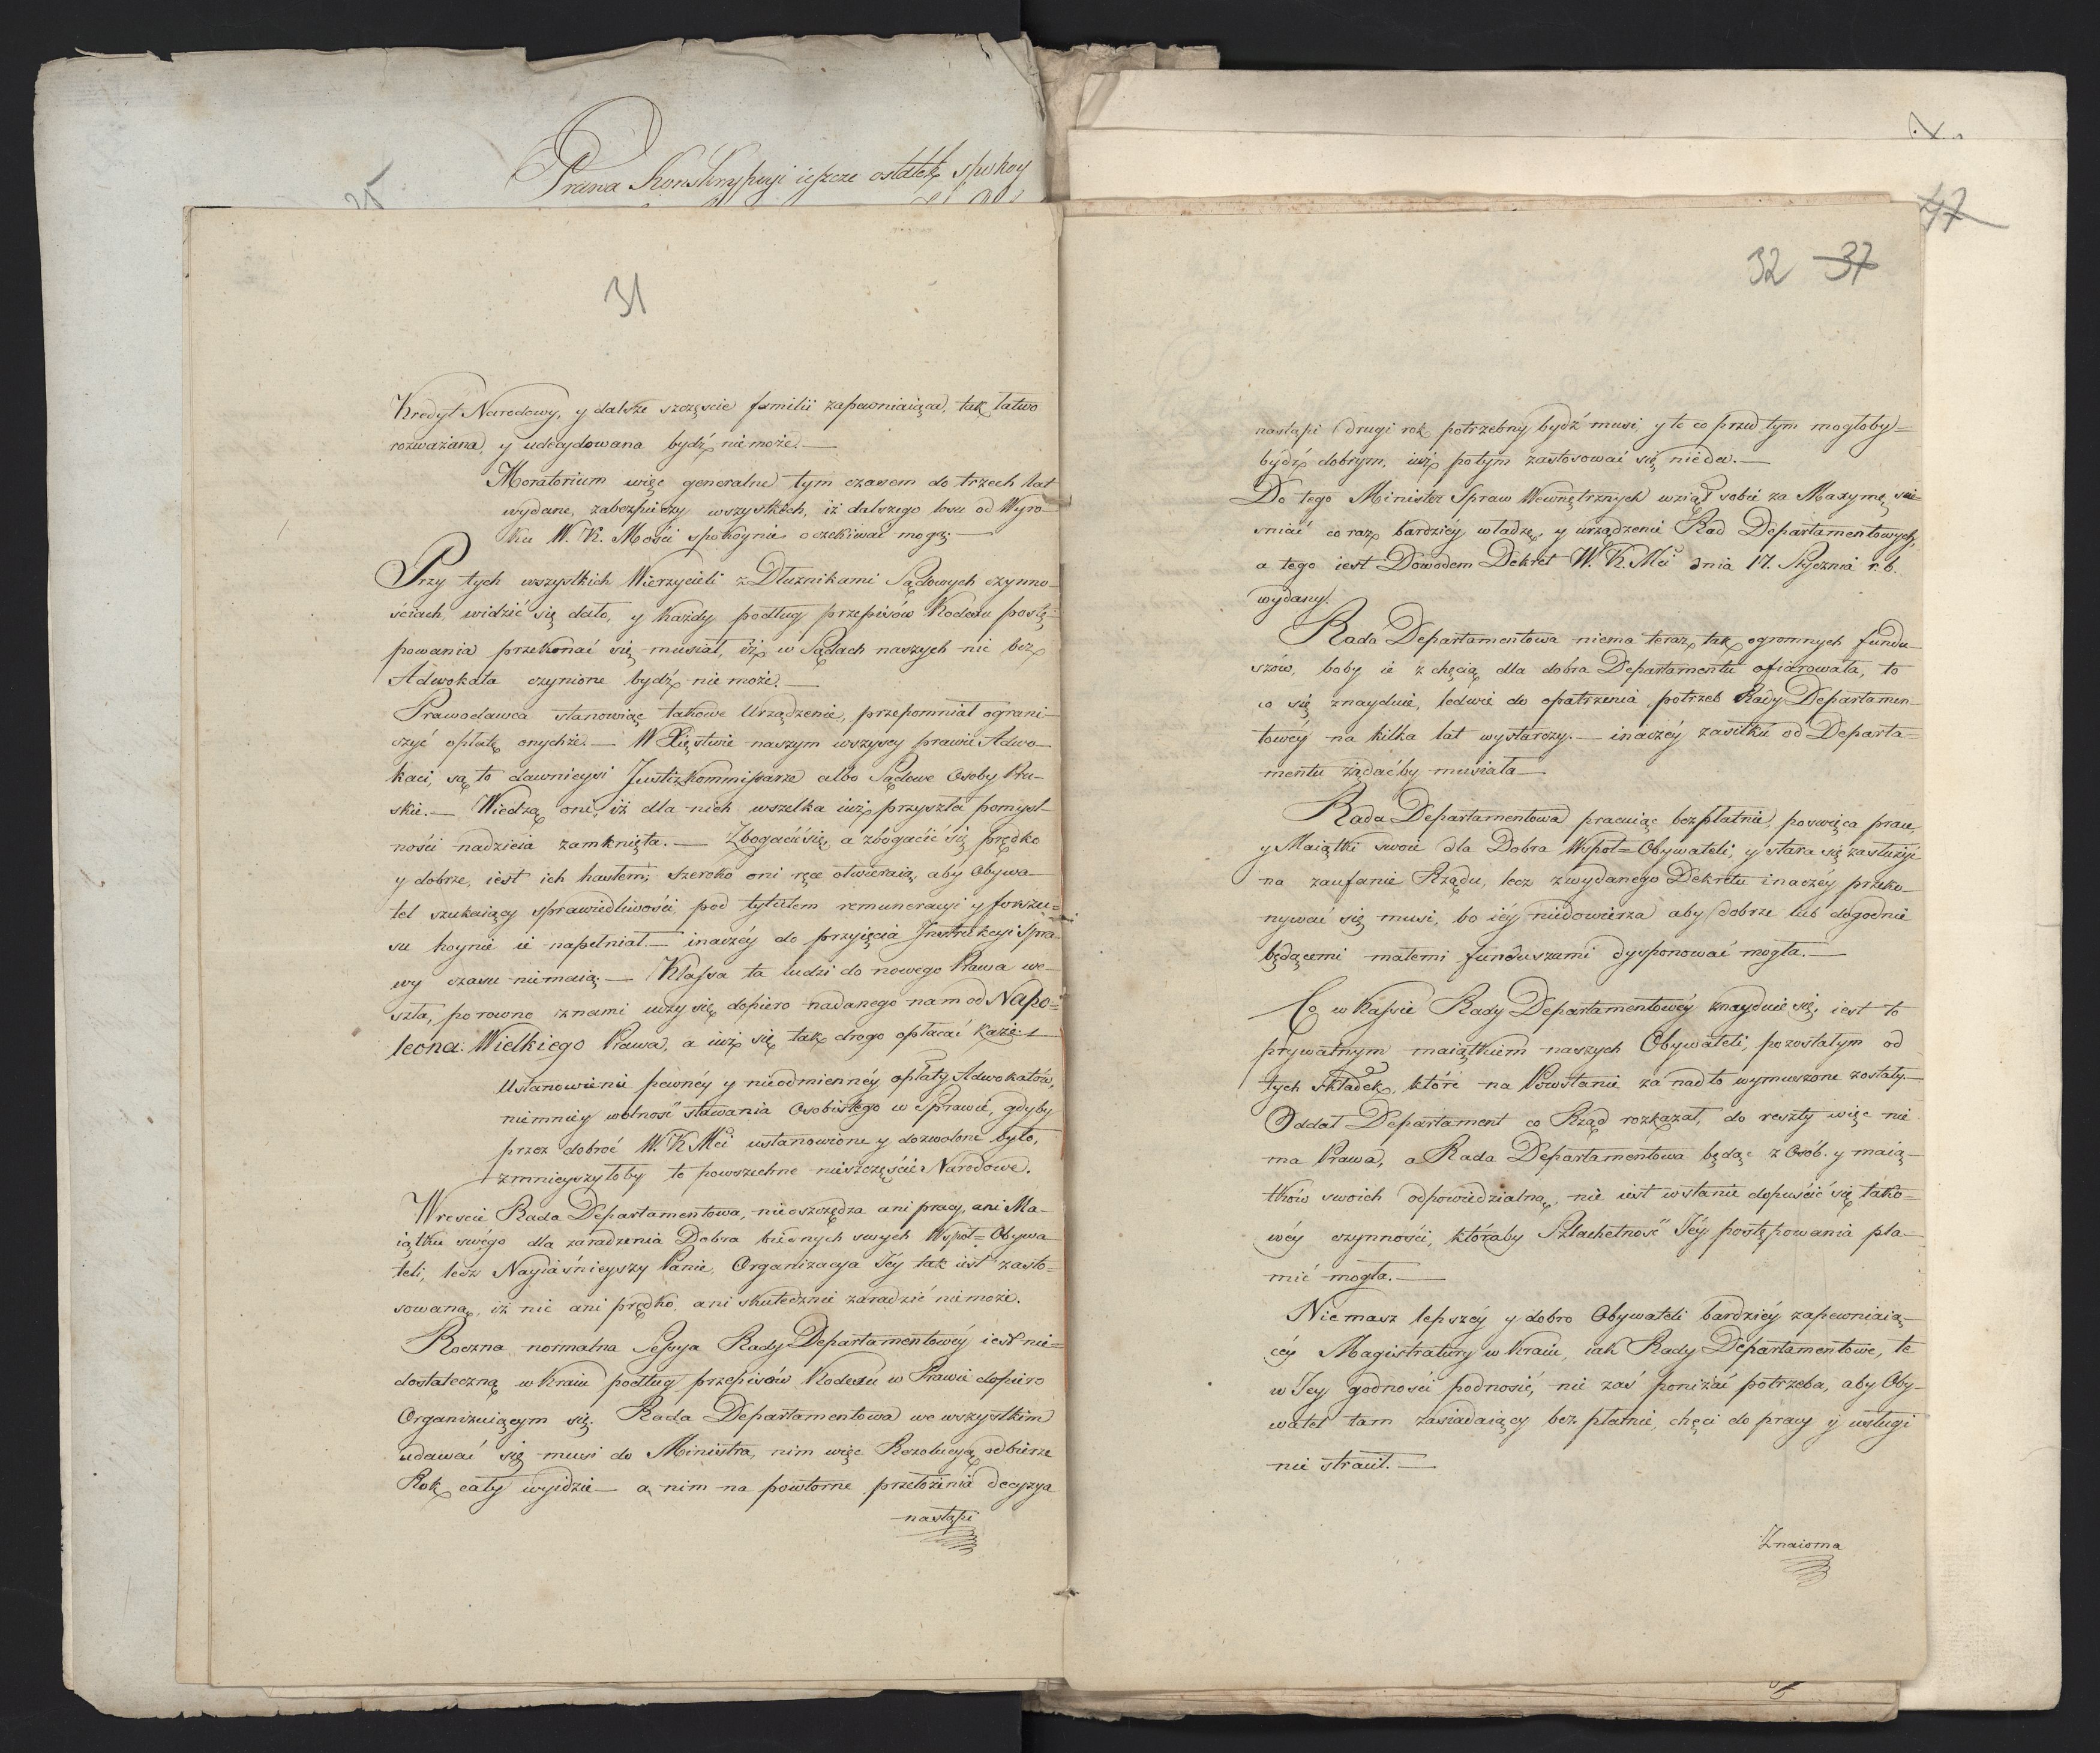 Prawa Konskrypcyi ieszcze ostatek spokoy
25
31
Kredyt Narodowy, y dalsze szczęscie familii zapewniaiąca, tak łatwo
rozważana, y udecydowana bydź nie może.—
Moratorium więc generalne tym czasem do trzech lat
wydane, zabezpieczy wszystkich, iż dalszego losu od Wyro-
ku W. K. Mości spokoynie oczekiwać mogą.—
Przy tych wszystkich Wierzycieli z Dłużnikami Sądowych czynno-
ściach, widzić się dało, y każdy podług przepisów Kodexu postę-
powania przekonać się musiał, iż w Sądach naszych nic bez
Adwokata czynione bydź nie może.—
Prawodawca stanowiąc takowe Urządzenie, przepomniał ograni-
czyć opłatę onychże.— W Xięstwie naszym wszyscy prawie Adwo-
kaci, są to dawnieysi Justizkommissarze albo Sądowe Osoby Pru-
skie.— Wiedzą oni, iż dla nich wszelka iuż przyszła pomyśl-
ności nadzieia zamknięta.— Zbogacić się, a zbogacić się prędko
y dobrze, iest ich hasłem; szeroko oni ręce otwieraią, aby Obywa-
tel szukaiący sprawiedliwości pod tytułem remuneracyi y forszu=
su hoynie ie napełniał.— inaczéy do przyięcia Instrukcyi Spra-
wy czasu nie maią.— Klassa ta ludzi do nowego Prawa we-
szła, porowno z nami uczy się dopiero nadanego nam od Napo=
leona Wielkiego Prawa, a iuż się tak drogo opłacać każe.—
Ustanowienie pewnéy y nieodmiennéy opłaty Adwokatów,
niemniey wolność stawania Osobistego w Sprawie, gdyby
przez dobroć W. K Mci ustanowione y dozwolone było,
zmnieyszyłoby to powszechne nieszczęście Narodowe.
Wrescie Rada Departamentowa, nie oszczędza ani pracy, ani Ma-
iątku swégo dla zaradzenia Dobra biednych swych Wspoł=Obywa
teli, lecz Nayiaśnieyszy Panie, Organizacya Jéy tak iest zasto=
sowaną, iż nic ani prędko, ani skutecznie zaradzić nie może.
Roczna normalna Sessya Rady Departamentowéy iest nie=
dostateczną w Kraiu podług przepisów Kodexu w Prawie dopiero
Organizuiącym się. Rada Departamentowa we wszystkim
udawać się musi do Ministra, nim więc Rezolucyą odbierze
Rok cały wyidzie— a nim na powtorne przełożenia decyzya
nastąpi
47
32 37
nastąpi drugi rok potrzebny bydź musi, y to co przed tym mogłoby=
bydź dobrym, iuż potym zastosować się nieda.—
Do tego Minister Spraw Wewnętrznych wziął sobie za Maxymę, ści=
sniać co raz bardziéy władzę, y urządzenie Rad Departamentowych,
a tego iest Dowodem Dekret W. K. Mci dnia 17. Stycznia r. b.
wydany.
Rada Departamentowa niema teraz tak ogromnych fundu-
szów, boby ie z chęcią dla dobra Departamentu ofiarowała, to
co się znayduie, ledwie do opatrzenia potrzeb Rady Departamen-
towéy na kilka lat wystarczy.— inaczéy zasiłku od Departa=
mentu żądaćby musiała—
Rada Departamentowa pracuiąc bezpłatnie, poswięca prace,
y Maiątki swoie dla Dobra Wspoł=Obywateli, y stara się zasłużyć
na zaufanie Rządu, lecz z wydanego Dekretu inaczéy przeko-
nywać się musi, bo iéy niedowierza aby dobrze lub dogodnie
będącemi małemi funduszami dysponować mogła.—
Co w Kassie Rady Departamentowéy znayduie się, iest to
prywatnym maiątkiem naszych Obywateli, pozostałym od
tych Składek, które na Powstanie za nadto wymuszone zostały.—
Oddał Departament co Rząd rozkazał, do reszty więc nie
ma Prawa, a Rada Departamentowa będąc z Osób y maią-
tków swoich odpowiedzialną, nie iest wstanie dopuścić się tako=
wéy czynności, któraby Szlachetność Jéy postępowania pla-
mić mogła.—
Nie masz lepszéy y dobro Obywateli bardziéy zapewniaią-
céy Magistratury w Kraiu, iak Rady Departamentowe, te
w Jey godności podnosić, nie zaś poniżać potrzeba, aby Oby-
watel tam zasiadaiący bez płatnie, chęci do pracy y usługi
nie stracił.—
Znaioma